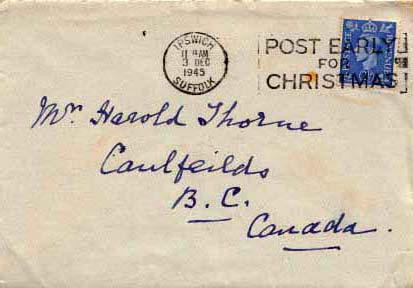 IPSWICH
11 AM
3 DEC
1945
SUFFOLK
POST EARLY
FOR
CHRISTMAS
Mr. Harold Thorne
Caulfeilds
B.C.
Canada.